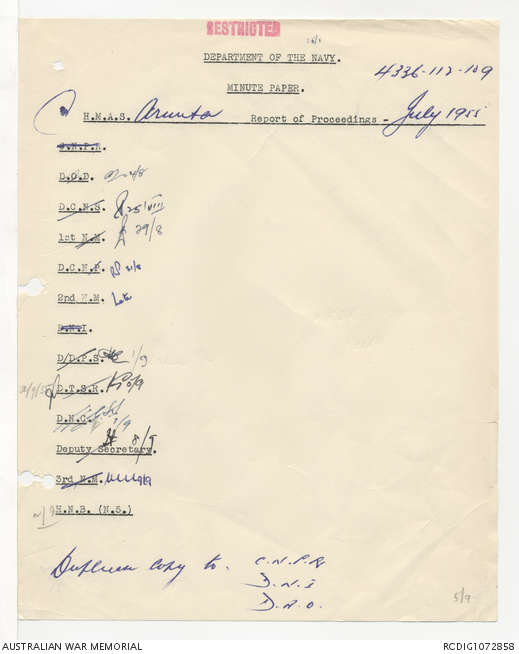 RESTRICTED
DEPARTMENT OF THE NAVY.
4336-112-109
MINUTE PAPER.
H.M.A.S. Arunta Report of Proceedings - July 1955
C.N.P.R.
D.O.D.
D.C.N.S. 25/VIII
1st N.M. 29/8
D.C.N.P. 31/8
2nd N.M.
D.N.I.
D/D.P.S. 1/9
D.T.S.R.
D.N.C. 7/9
Deputy Secretary. 8/9
3rd N.M. 9/9
H.N.B. (N.S.)
Duplicate copy to. C.N.P.R
D.N.I
D.A.O.
5/9
AUSTRALIAN WAR MEMORIAL RCDIG1072858